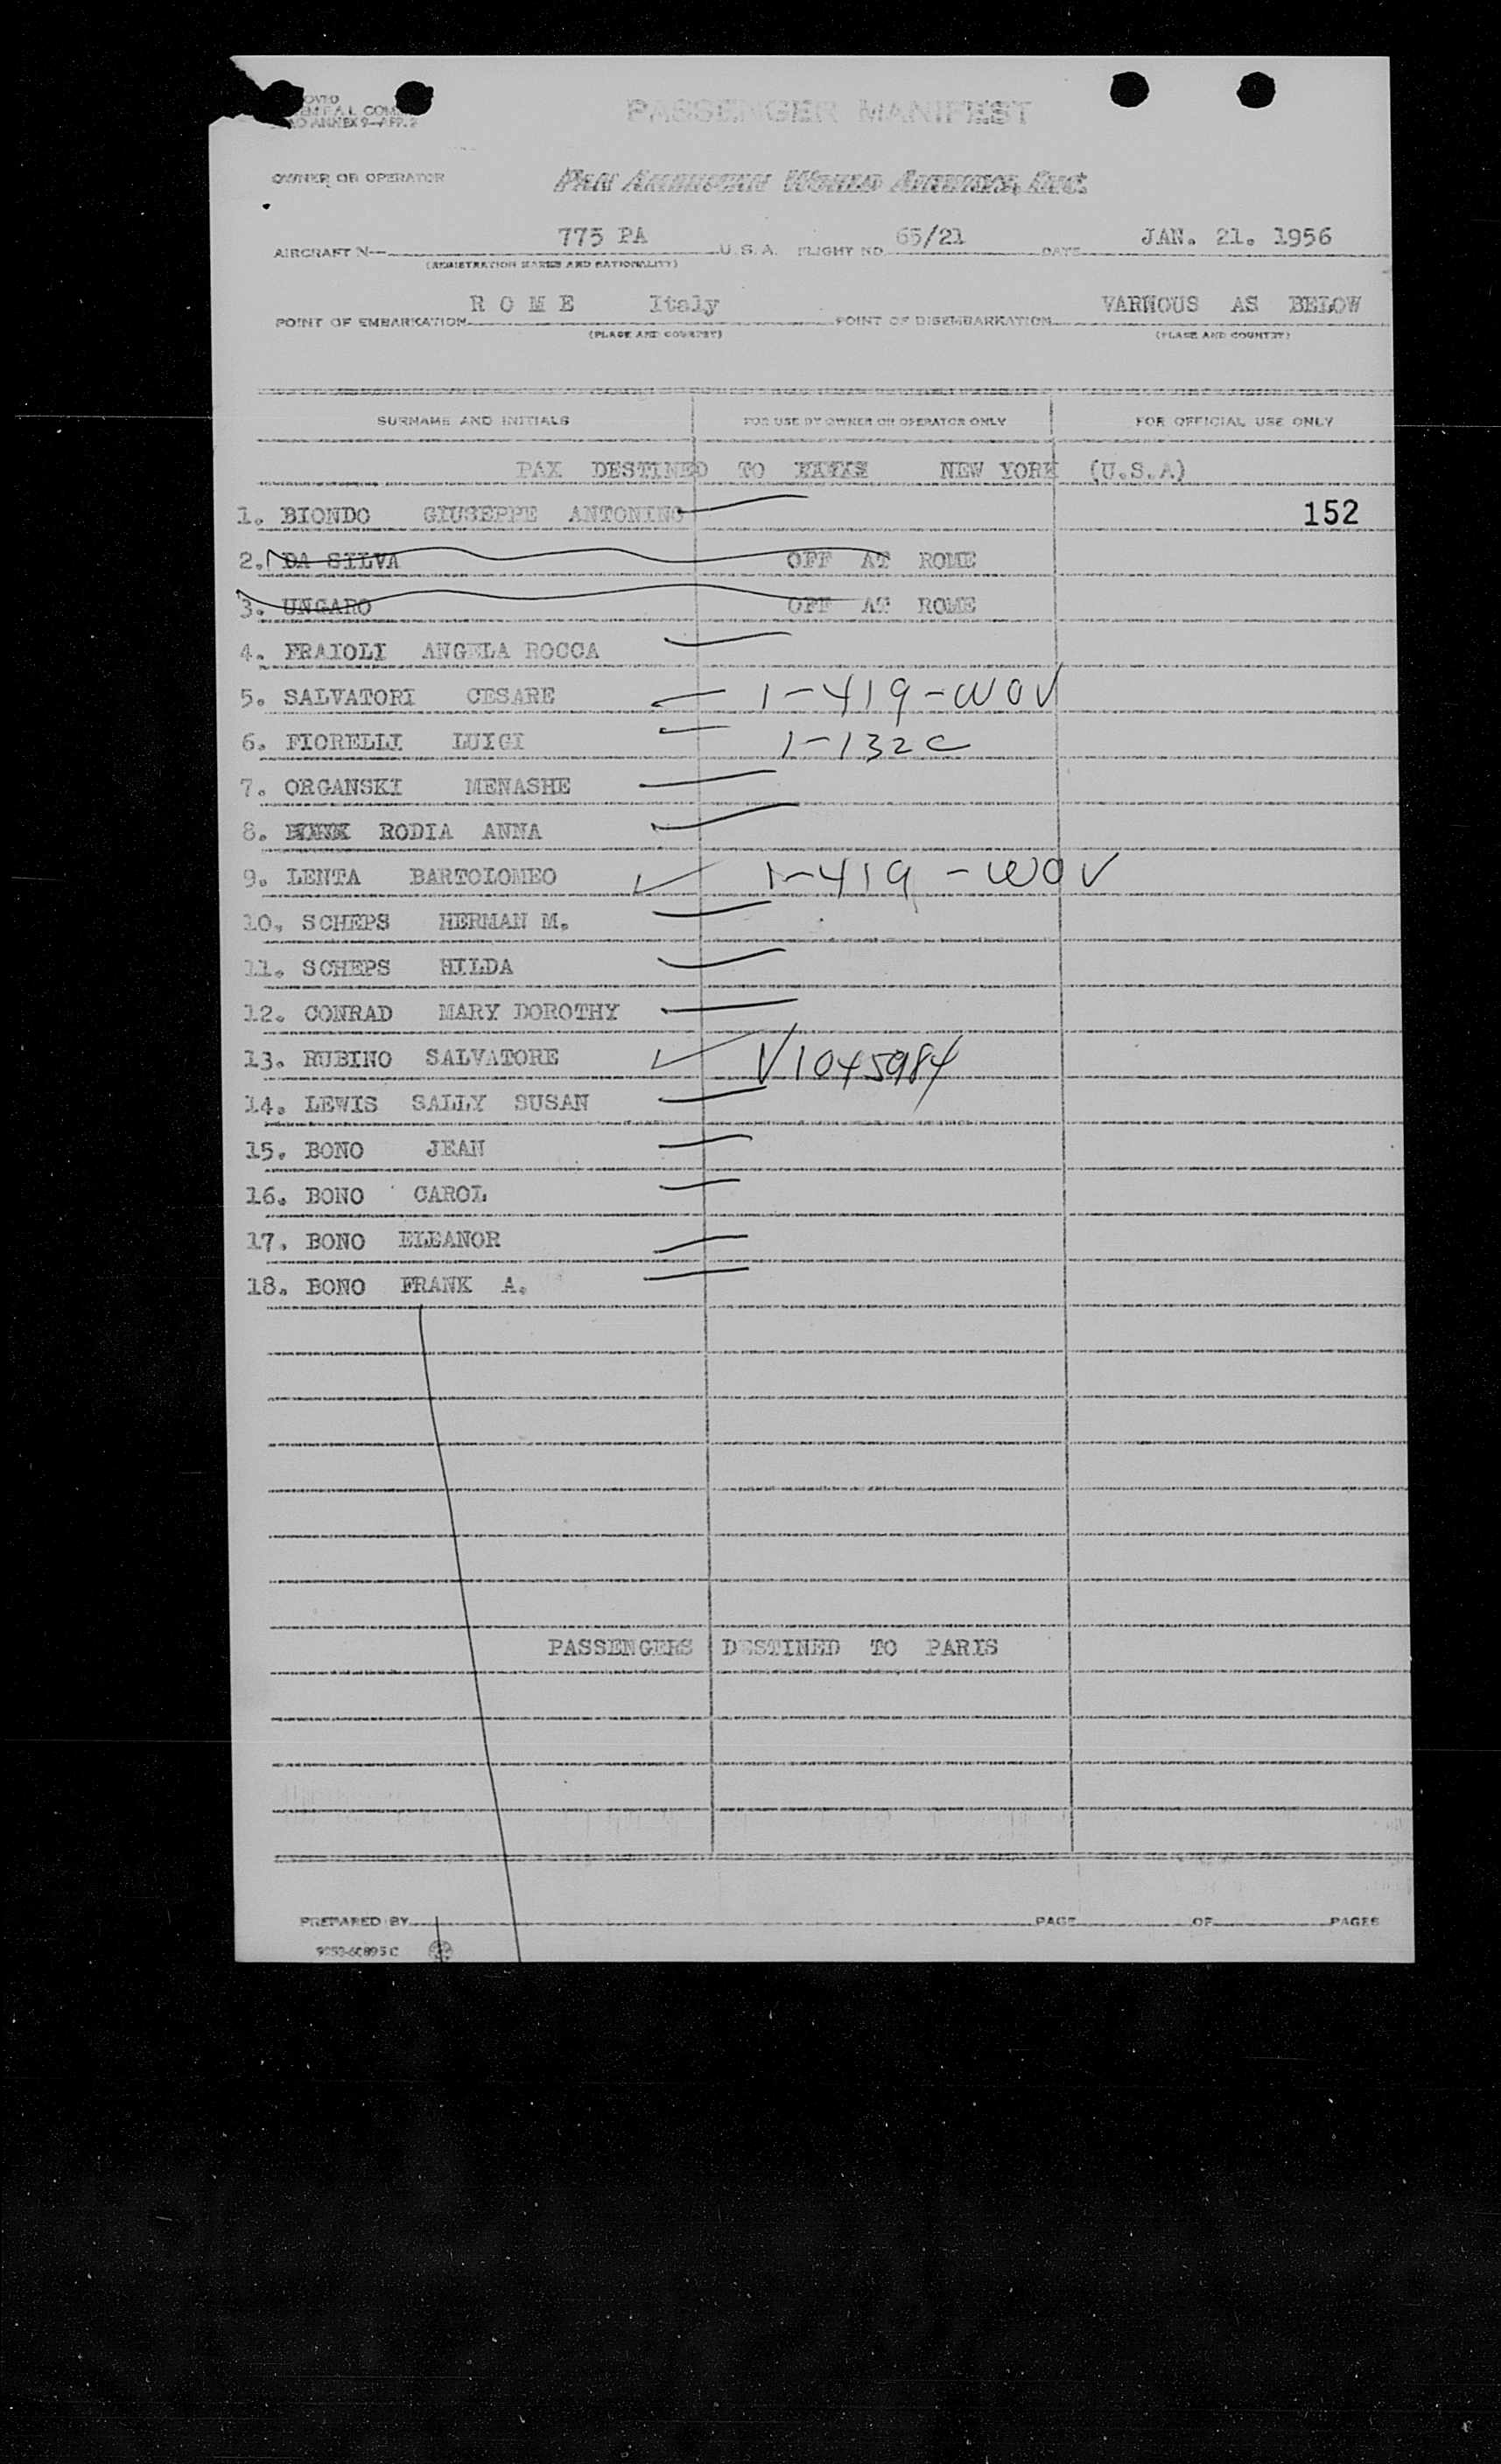 PASSENGER MANIFEST
ANNEX 9—APP. 2
OWNER OR OPERATOR PAN AMERICAN WORLD AIRWAYS, INC.
AIRCRAFT N— 775 PA U.S.A. FLIGHT NO. 65/21 DATE JAN. 21. 1956
(REGISTRATION MARKS AND NATIONALITY)
POINT OF EMBARKATION R O M E Italy POINT OF DISEMBARKATION VARNOUS AS BELOW
(PLACE AND COUNTRY) (PLACE AND COUNTRY)
SURNAME AND INITIALS FOR USE BY OWNER OR OPERATOR ONLY FOR OFFICIAL USE ONLY
PAX DESTINED TO NEW YORK (U.S.A)
1. BIONDO GIUSEPPE ANTONINO 152
2. DA SILVA OFF AT ROME
3. UNGARO OFF AT ROME
4. FRAIOLI ANGELA ROCCA
5. SALVATORI CESARE 1-419-WOV
6. FIORELLI LUIGI 1-132C
7. ORGANSKI MENASHE
8. RODIA ANNA
9. LENTA BARTOLOMEO 1-419-WOV
10. SCHEPS HERMAN M.
11. SCHEPS HILDA
12. CONRAD MARY DOROTHY
13. RUBINO SALVATORE V1045984
14. LEWIS SALLY SUSAN
15. BONO JEAN
16. BONO CAROL
17. BONO ELEANOR
18. BONO FRANK A.
PASSENGERS DESTINED TO PARIS
PREPARED BY PAGE OF PAGES